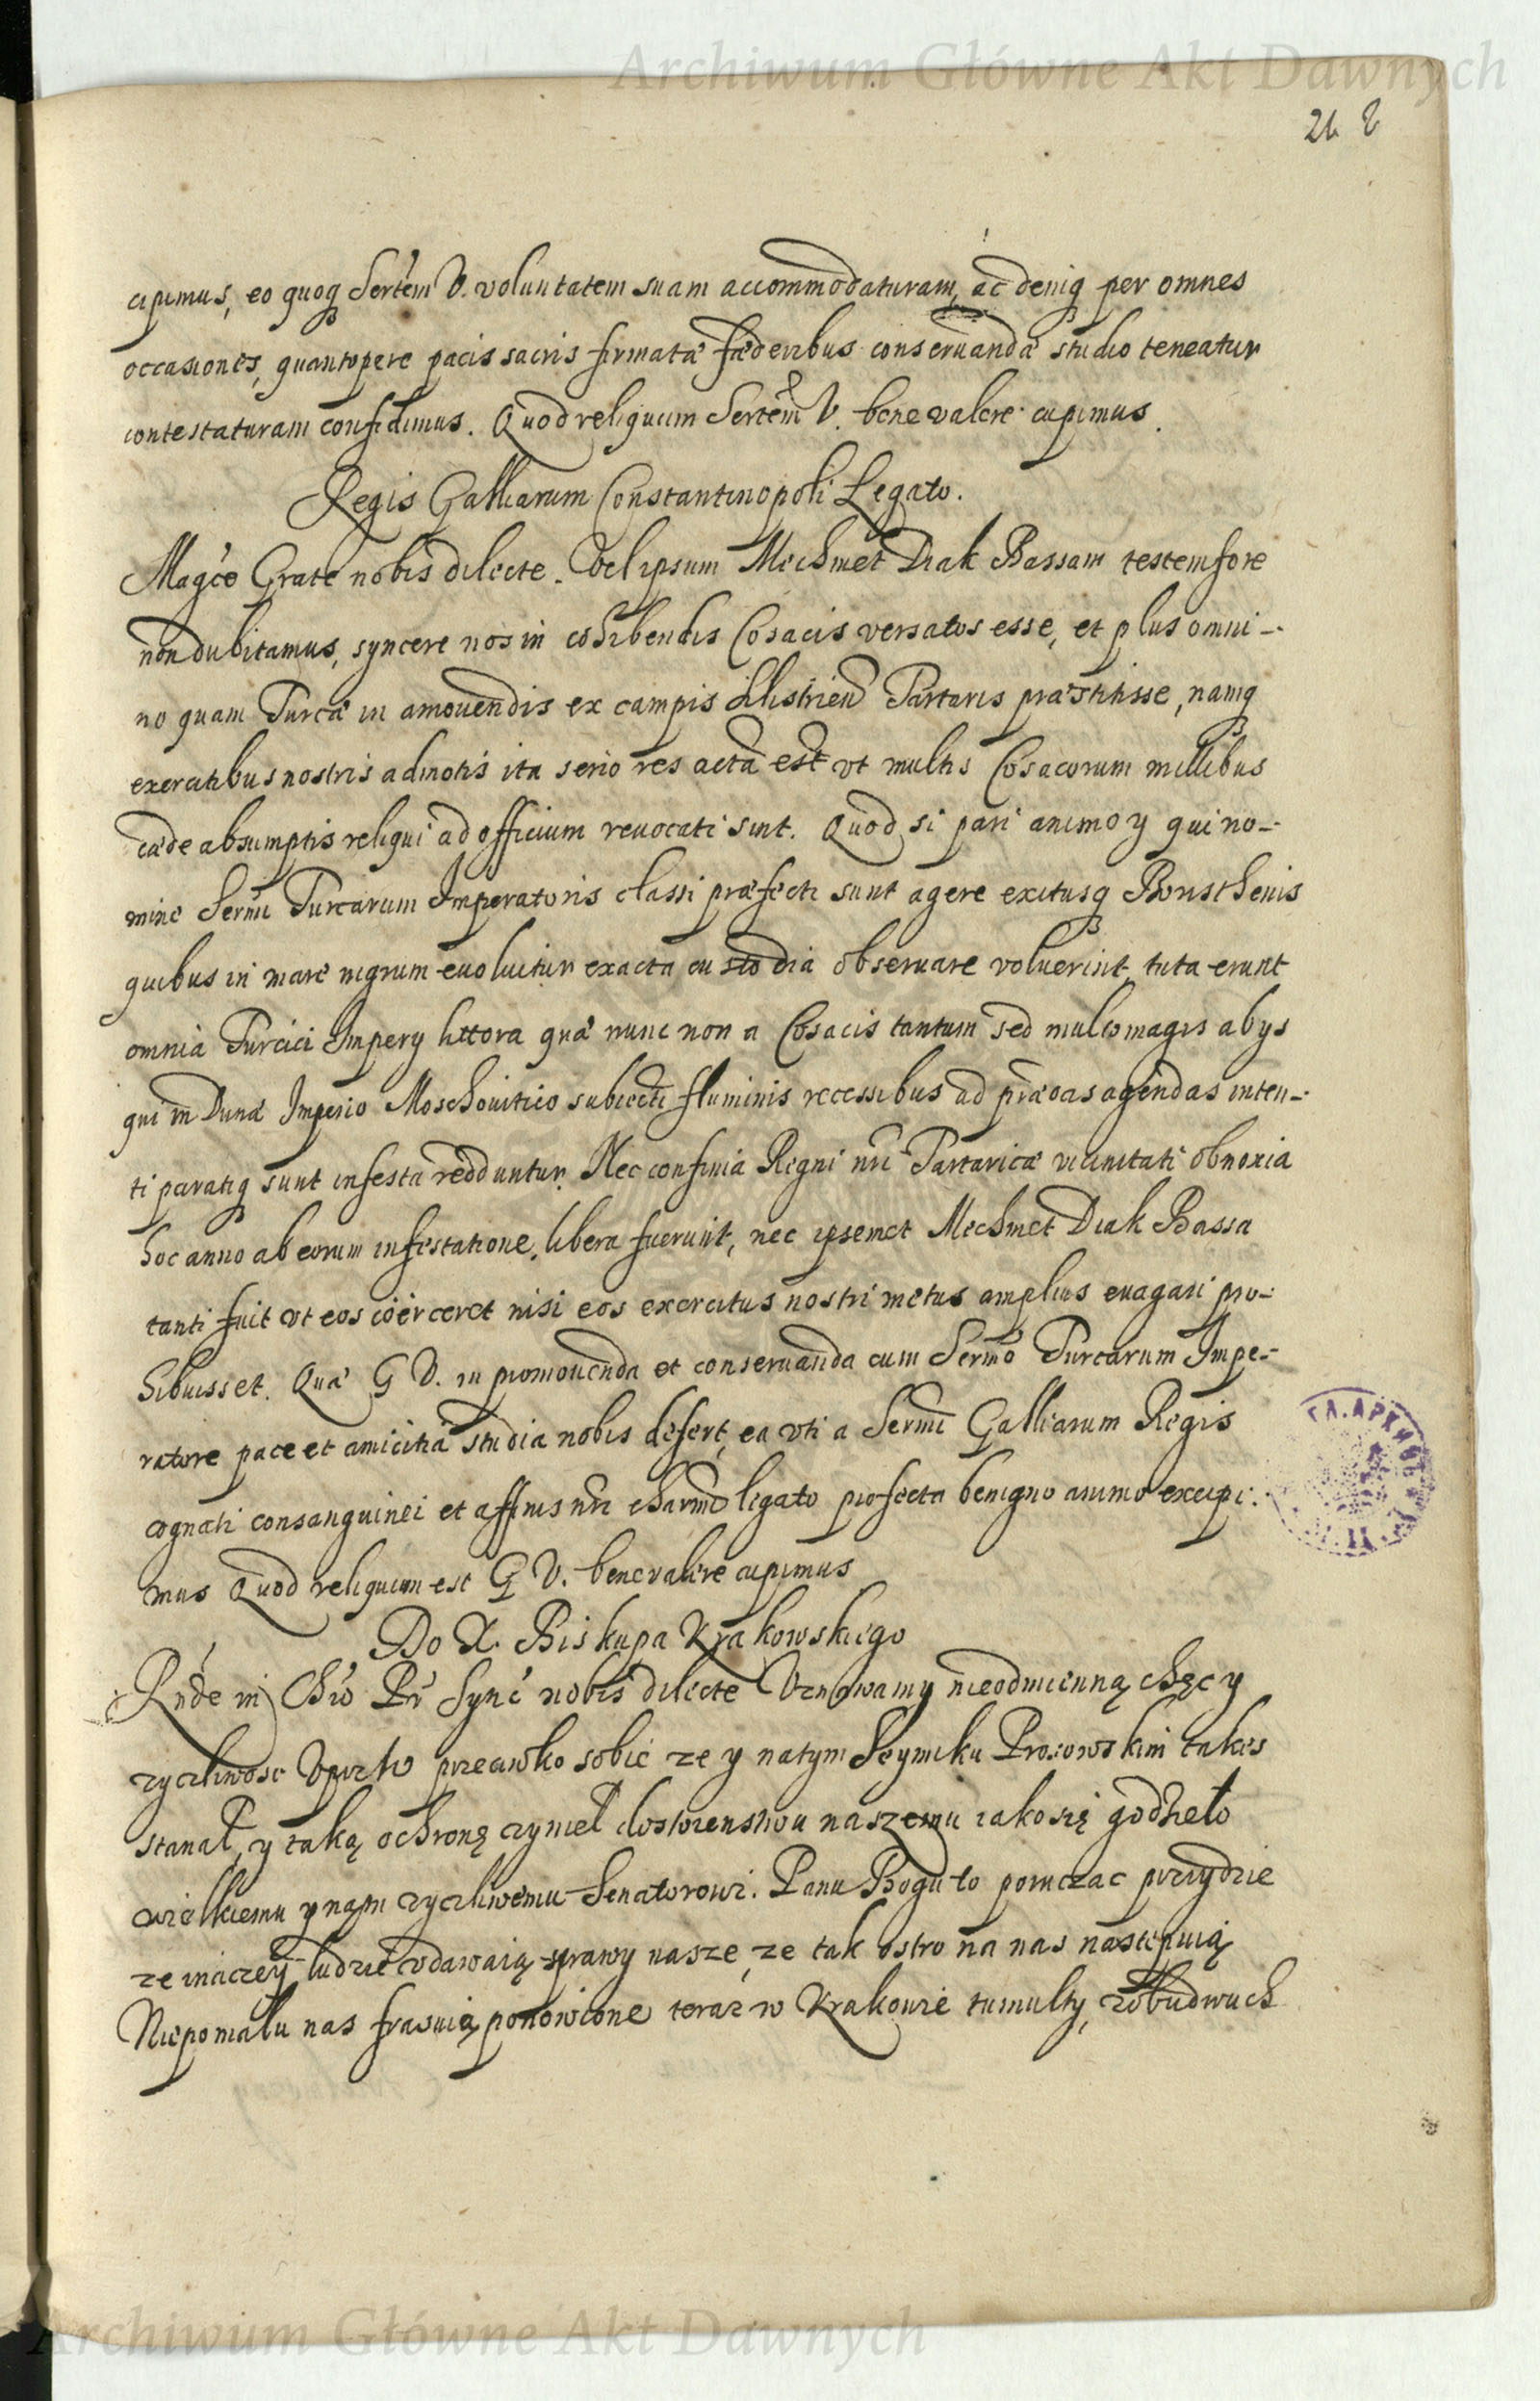 Archiwum Główne Akt Dawnych
26 2
cipimus, eo quoq Sertem V. voluntatem suam accommodaturam, ac deniq per omnes
occasiones, quantopere pacis sacris firmatæ fæderibus conseruandæ studio teneatur
contestaturam confidimus. Quod reliquum Sertem V. bene valere cupimus.
Regis Galliarum Constantinopoli Legato.
Magce Grate nobis dilecte. Vel ipsum Mechmet Diak Bassam testem fore
non dubitamus, syncere nos in cohibendis Cosacis versatos esse, et plus omni-
no quam Turcæ in amouendis ex campis Silistrien Tartaris præstitisse, namq
exercitibus nostris admotis ita serio res acta est vt multis Cosacorum millibus
cæde absumptis reliqui ad officium reuocati sint. Quod si pari animo y qui no-
mine Sermi Turcarum Imperatoris classi præfecti sunt agere exitusq Boristhenis
quibus in mare nigrum euoluitur exacta custodia obseruare voluerint, tuta erunt
omnia Turcici Impery littora quæ nunc non a Cosacis tantum sed multo magis ab ys
qui in Dunæ Imperio Moschouitico subiecti fluminis recessibus ad prædas agendas inten-
ti paratiq sunt infesta redduntur. Nec confinia Regni nri Tartaricæ vicinitati obnoxia
hoc anno ab eorum infestatione libera fuerunt, nec ipsemet Mechmet Diak Bassa
tanti fuit vt eos coërceret nisi eos exercitus nostri metus amplius euagari pro-
hibuisset. Quæ G V. in promouenda et conseruanda cum Sermo Turcarum Impe-
ratore pace et amicitia studia nobis defert, ea vti a Sermi Galliarum Regis
cognati consanguinei et affinis nri charmo legato profecta benigno animo excipi-
mus Quod reliquum est G V. bene valere cupimus
Do X. Biskupa Krakowskiego
Rnde in Chro Pr Sync nobis dilecte Uznawamy nieodmienną chęc y
zyczliwosc Uprztw przeciwko sobie ze y natym Seymiku Proszowskim takes
stanał, y taką ochronę czynieł dostoienstwu naszemu iako się godzieło
wielkiemu y nam zyczliwemu Senatorowi. Panu Bogu to poruczac przydzie
ze inaczey ludzie vdawaią sprawy nasze, ze tak ostro na nas nastepuią
Niepomalu nas frasuią ponowione teraz w Krakowie tumulty, z obudwuch
Archiwum Główne Akt Dawnych